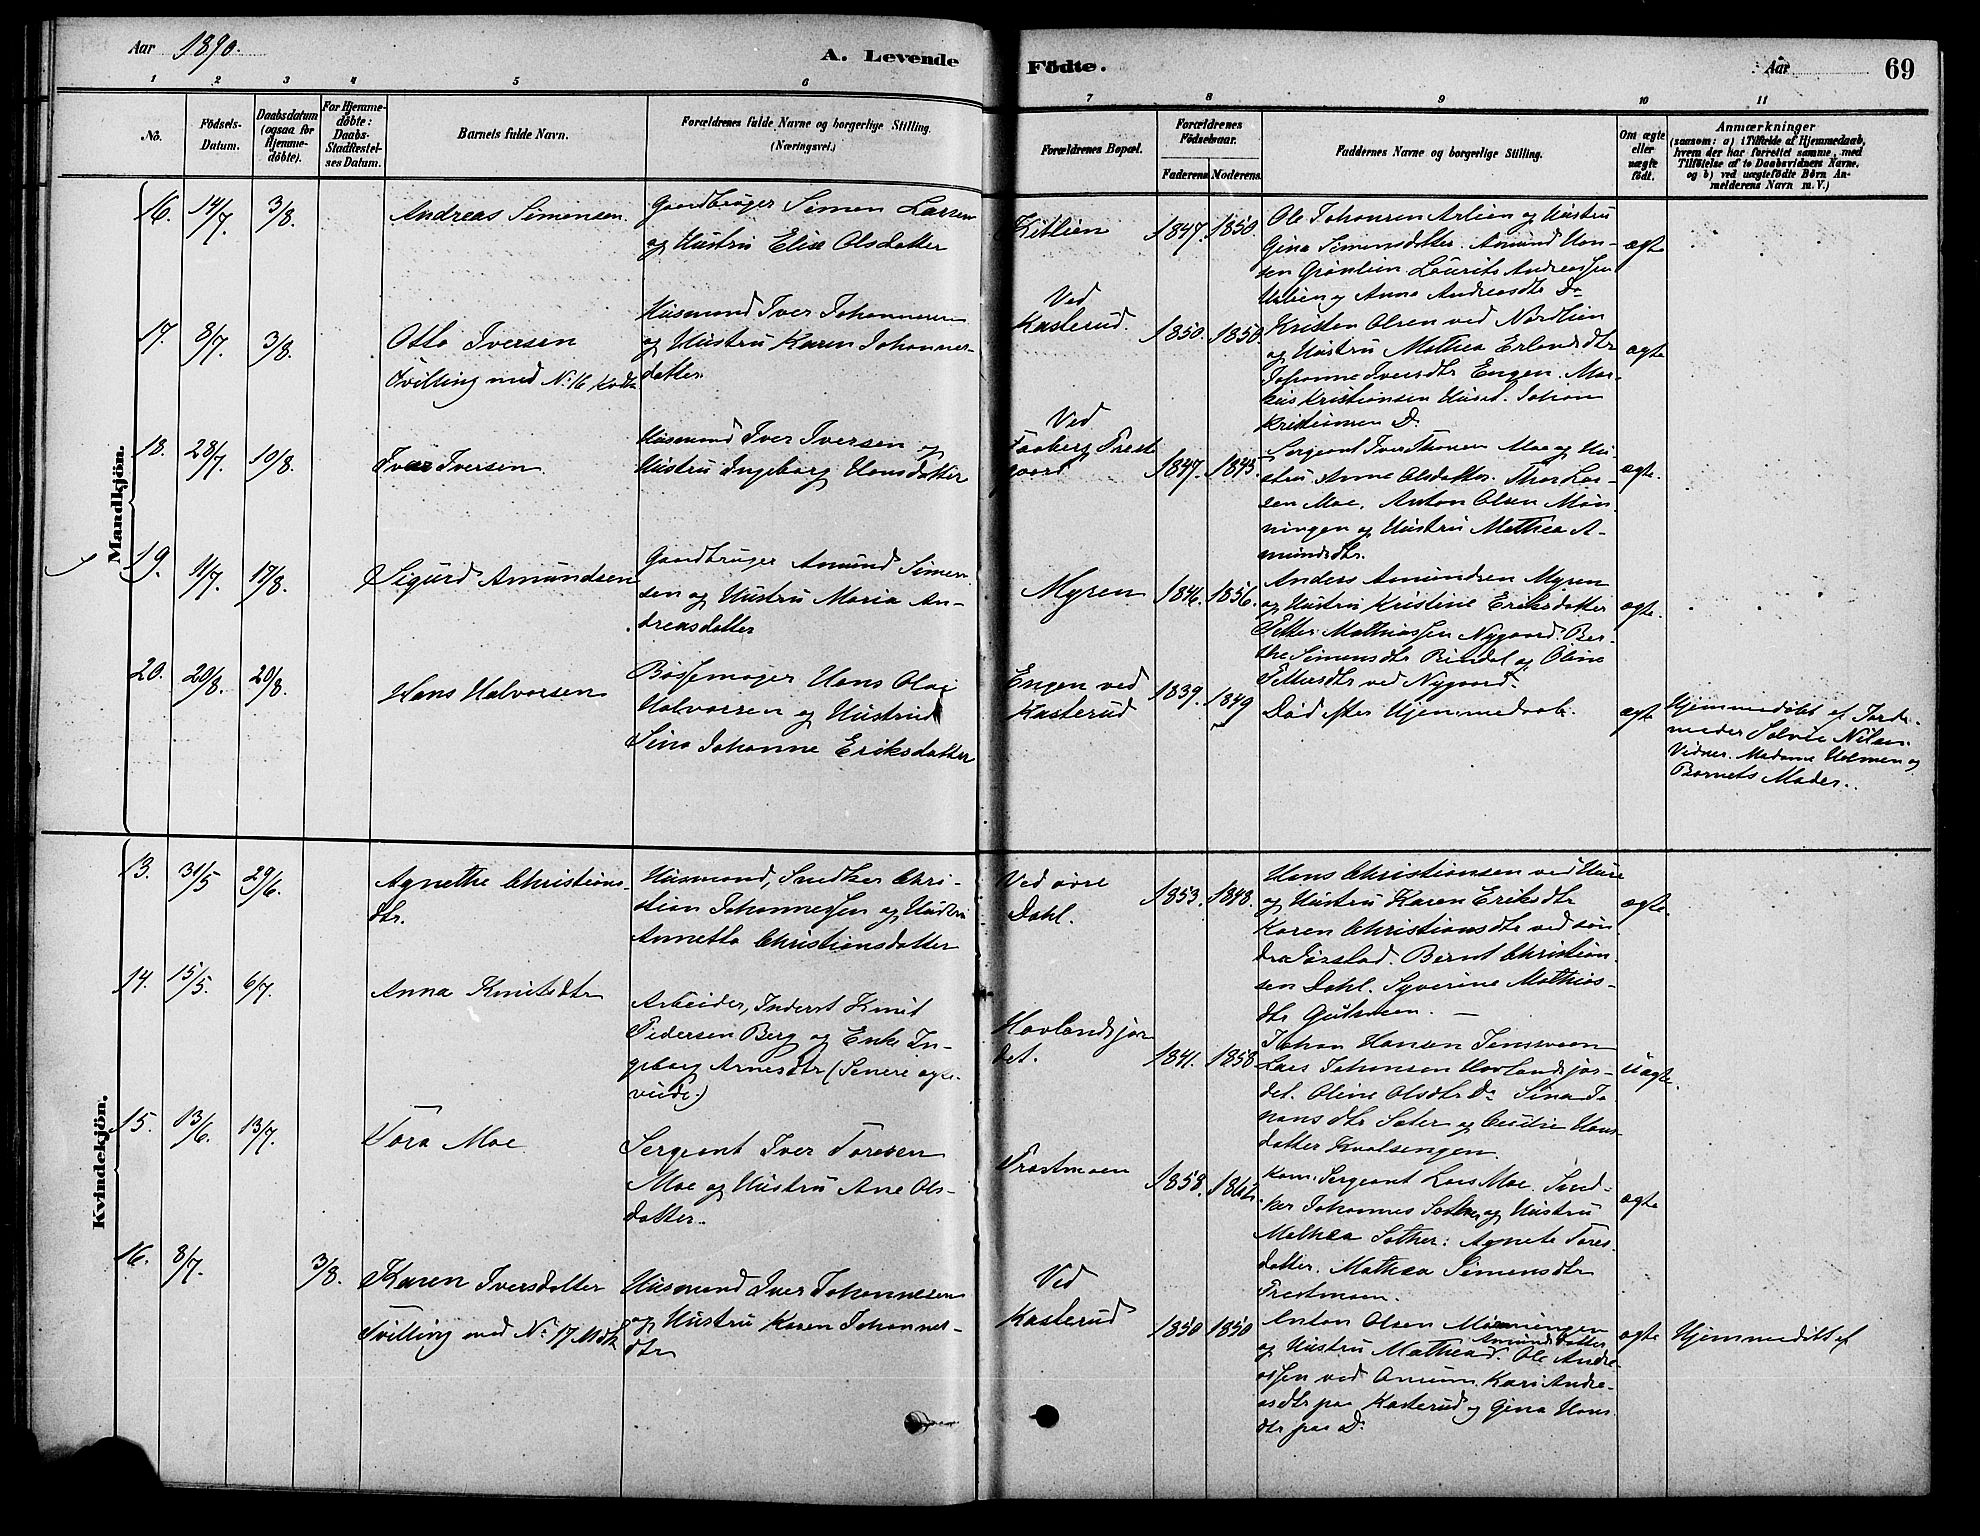 Aar 1890.
A. Levende Födte.
Aar
69
1 2 3 4 5 6 7 8 9 10 11
No.
Födsels-
Datum.
Daabsdatum
(ogsaa for
Hjemme-
döbte).
For Hjemme-
döbte:
Daabs-
Stadfæstel-
ses Datum.
Barnets fulde Navn.
Forældrenes fulde Navne og borgerlige Stilling.
(Næringsvei.)
Forældrenes Bopæl.
Forældrenes
Födselsaar.
Faderens
Moderens.
Faddernes Navne og borgerlige Stilling.
Om ægte
eller
uægte
født.
Anmærkninger
(saasom: a) i Tilfælde af Hjemmedaab,
hvem der har forrettet samme, med
Tilföielse af to Daabsvidners Navne,
og b) ved uægtefödte Börn An-
melderens Navn m. V.)
Mandkjön.
16.
14/7
3/8.
Andreas Simensen.
Gaardbruger Simen Larsen
og Hustru Elise Olsdatter
Kitlien
1847.
1850.
Ole Johansen Arlien og Hustru
Gina Simensdatter. Amund Han-
sen Grønlien Laurits Andreassen
Urlien og Anna Andreasdtr Do
ægte
17.
8/7
3/8.
Otto Iversen
Tvilling med No 16 Kvdk
Husmand Iver Johannesen
og Hustru Karen Johannes-
datter.
Ved
Kasterud.
1850.
1850
Kristen Olsen ved Nordlien
og Hustru Mathea Erlandsdtr
Johanne Iversdtr Engen. Mar-
kus Kristiansen Huset. Johan
Kristiansen Do
ægte
18.
28/7
10/8.
Iver Iversen.
Husmand Iver Iversen og
Hustru Ingeborg Hansdatter
Ved
Faaberg Prest
gaard
1847.
1843.
Sergeant Iver Thoresen Moe og Hu-
stru Anne Olsdatter. Thor Lar-
sen Moe. Anton Olsen Møn-
ningen og Hustru Mathea A-
mundsdtr.
ægte.
19.
11/7
17/8.
Sigurd Amundsen
Gaardbruger Amund Simen-
sen og Hustru Maria An-
dreasdatter
Myren
1846.
1856.
Anders Amundsen Myren
og Hustru Kristine Eriksdatter
Petter Mathiassen Nygaard. Ber-
the Simensdtr Rindal og Oline
Pettersdtr ved Nygaard.
ægte.
20.
20/8.
20/8.
Hans Halvorsen
Bøssemager Hans Olai
Halvorsen og Hustru
Sina Johanne Eriksdatter
Engen ved
Kasterud
1839.
1849
Død efter Hjemmedaab.
ægte
Hjemmedøbt af Jorde-
moder Solvei Nilsen.
Vidner. Madame Holmen og
Barnets Moder.
Kvindekjön.
13.
31/5
29/6.
Agnethe Christians-
dtr.
Husmand, Snedker Chri-
stian Johannessen og Hustru
Annette Christiansdatter
Ved øvre
Dahl.
1853.
1848.
Hans Christiansen ved Huse
og Hustru Karen Eriksdtr
Karen Christiansdtr ved søn-
dre Jørstad. Bernt Christian-
sen Dahl. Syverine Mathias-
dtr
ægte.
14.
15/5.
6/7.
Anna Knutsdtr
Arbeider, Inderst Knut
Pedersen Berg og Enke In-
geborg Arnesdtr (Senere ægte-
viede.)
Hovlandsjor
det.
1841.
1858
Johan Hansen
Lars Johansen Hovlandsjor-
det. Oline Olsdtr Do Sina Jo-
hansdtr Sæter og Cecilie Hans
datter Kvalsengen.
uægte.
15.
13/6.
13/7.
Tora Moe
Sergeant Iver Toresen
Moe og Hustru Ane Ols-
datter.
Prestmoen
1858.
Kom. Sergeant Lars Moe. Sned-
ker Johannes Sæther og Hustru
Mathea Sæther. Agnete Tores-
datter. Mathea Simensdtr
Prestmoen.
ægte
16.
8/7.
3/8.
Karen Iversdatter
Tvilling med No 17 Mdk
Husmand Iver Johannesen
og Hustru Karen Johannes-
dtr
Ved
Kasterud
1850
1850
Anton Olsen Mønningen
og Hustru Mathea Amundsdatter. Ole Andre-
assen ved Kari Andre-
asdtr paa Kasterud og Gina Hans
dtr paa Do
ægte
Hjemmedøbt af